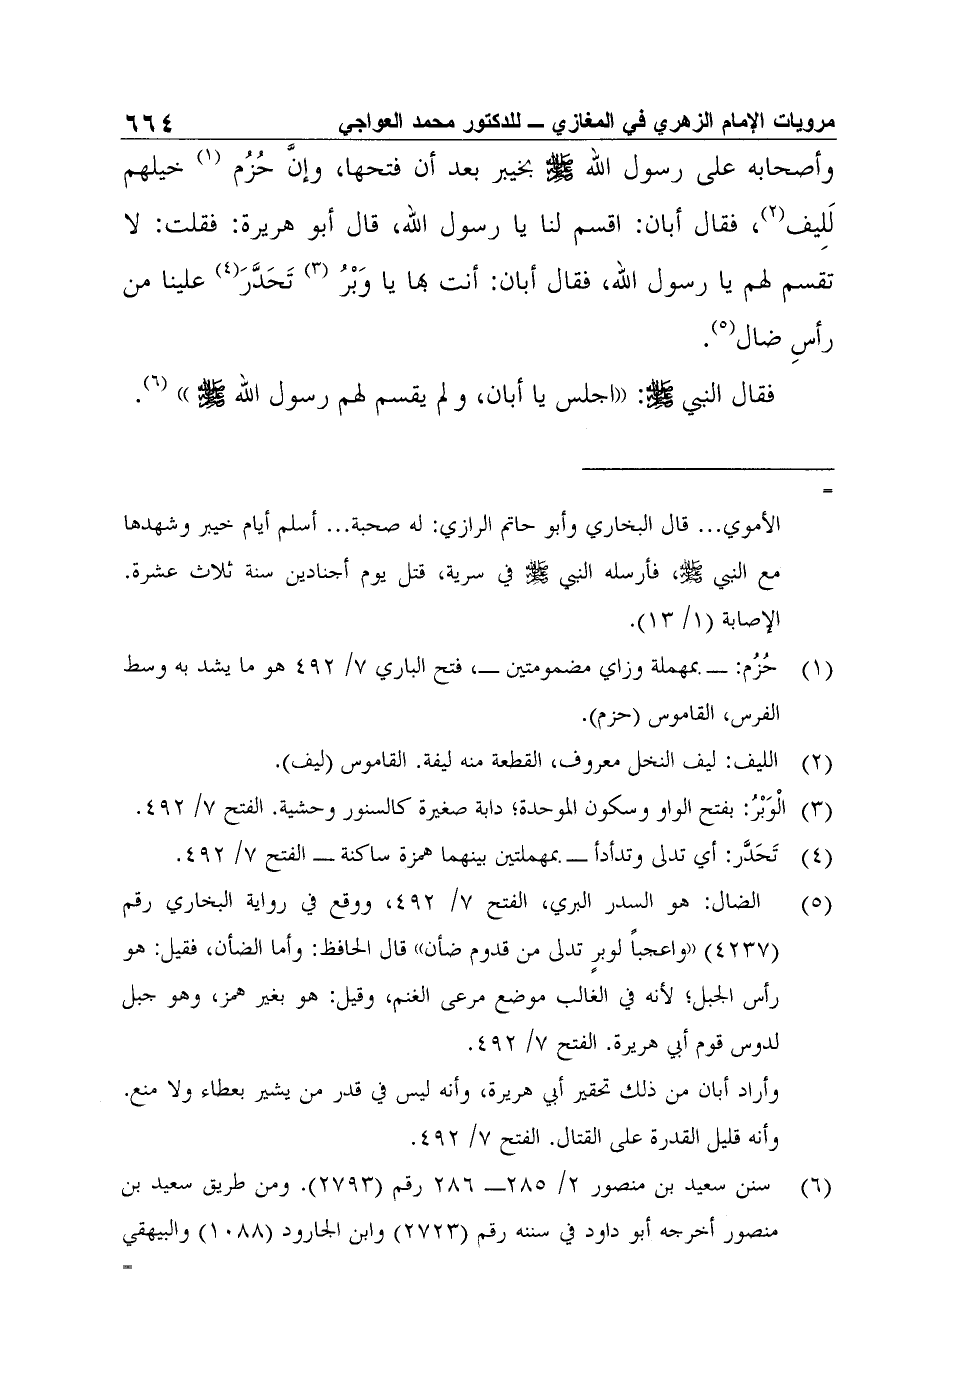 مرويات الإمام الزهري في المغازي ــ للدكتور محمد العواجي ٦٦٤
وأصحابه على رسول الله ﷺ بخيبر بعد أن فتحها، وإنَّ حُزُم (١) خيلهم
لَلِيف(٢)، فقال أبان: اقسم لنا يا رسول الله، قال أبو هريرة: فقلت: لا
تقسم لهم يا رسول الله، فقال أبان: أنت بها يا وَبْرُ (٣) تَحَدَّرَ(٤) علينا من
رأسِ ضال(٥).
فقال النبي ﷺ: «اجلس يا أبان، و لم يقسم لهم رسول الله ﷺ » (٦).
=
الأموي... قال البخاري وأبو حاتم الرازي: له صحبة... أسلم أيام خيبر وشهدها
مع النبي ﷺ، فأرسله النبي ﷺ في سرية، قتل يوم أجنادين سنة ثلاث عشرة.
الإصابة (١/ ١٣).
(١) حُزُم: ــ بمهملة وزاي مضمومتين ــ، فتح الباري ٧/ ٤٩٢ هو ما يشد به وسط
الفرس، القاموس (حزم).
(٢) الليف: ليف النخل معروف، القطعة منه ليفة. القاموس (ليف).
(٣) الْوَبْرُ: بفتح الواو وسكون الموحدة؛ دابة صغيرة كالسنور وحشية. الفتح ٧/ ٤٩٢.
(٤) تَحَدَّر: أي تدلى وتدأدأ ــ بمهملتين بينهما همزة ساكنة ــ الفتح ٧/ ٤٩٢.
(٥) الضال: هو السدر البري، الفتح ٧/ ٤٩٢، ووقع في رواية البخاري رقم
(٤٢٣٧) «واعجباً لوبرٍ تدلى من قدوم ضأن» قال الحافظ: وأما الضأن، فقيل: هو
رأس الجبل؛ لأنه في الغالب موضع مرعى الغنم، وقيل: هو بغير همز، وهو جبل
لدوس قوم أبي هريرة. الفتح ٧/ ٤٩٢.
وأراد أبان من ذلك تحقير أبي هريرة، وأنه ليس في قدر من يشير بعطاء ولا منع.
وأنه قليل القدرة على القتال. الفتح ٧/ ٤٩٢.
(٦) سنن سعيد بن منصور ٢/ ٢٨٥ــ ٢٨٦ رقم (٢٧٩٣). ومن طريق سعيد بن
منصور أخرجه أبو داود في سننه رقم (٢٧٢٣) وابن الجارود (١٠٨٨) والبيهقي
=